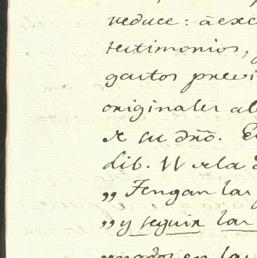 reduce: á exc
testimonios,
gastos previ
originales al
de su dño. E
lib. W de la
„ Tengan las
„ y seguir las
„ nados en las